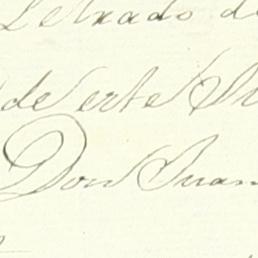 Letrado de
de este
Don Juan